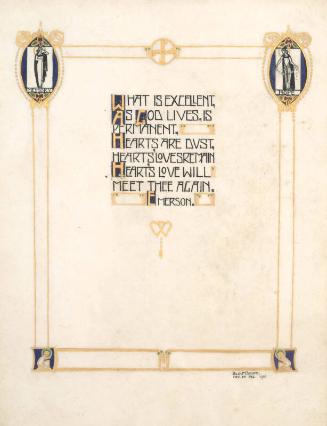 MEMORY
HOPE
WHAT IS EXCELLENT,
AS GOD LIVES, IS
PERMANENT.
HEARTS ARE DUST,
HEARTS' LOVES REMAIN
HEART'S LOVE WILL
MEET THEE AGAIN.
EMERSON.